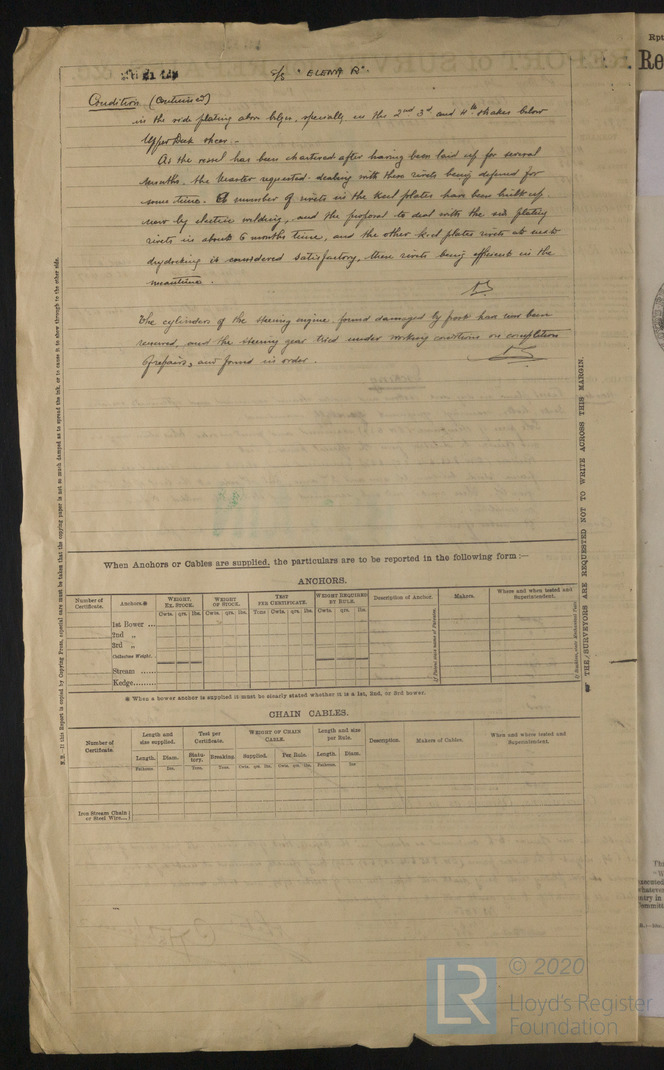 S/S "ELENA R".
Condition (Continued)
in the side plating above bilge, specially in the 2nd 3rd and 4th strakes below
Upper Deck sheer.-
As the vessel has been chartered after having been laid up for several
months, the Master requested dealing with these rivets being deferred for
some time. A number of rivets in the keel plates have been built up
now by electric welding, and the proposal to deal with the side plating
rivets in about 6 months time, and the other keel plates rivets at next
drydocking is considered satisfactory, these rivets being efficient in the
meantime.
The cylinders of the steering engine found damaged by frost has now been
renewed, and the steering gear tried under working conditions on completion
of repairs, and found in order.
When Anchors or Cables are supplied, the particulars are to be reported in the following form:—
ANCHORS.
Number of Certificate. Anchors.* WEIGHT. EX. STOCK. WEIGHT OF STOCK. TEST PER CERTIFICATE. WEIGHT REQUIRED BY RULE. Description of Anchor. Makers. Where and when tested and Superintendent.
Cwts. qrs. lbs. Cwts. qrs. lbs. Tons Cwts. qrs. lbs. Cwts. qrs. lbs.
1st Bower ...
2nd „
3rd „
Collective Weight.
Stream ......
Kedge.........
* When a bower anchor is supplied it must be clearly stated whether it is a 1st, 2nd, or 3rd bower.
CHAIN CABLES.
Number of Certificate. Length and size supplied. Test per Certificate. WEIGHT OF CHAIN CABLE. Length and size per Rule. Description. Makers of Cables. When and where tested and Superintendent.
Length. Diam. Statutory. Breaking. Supplied. Per Rule. Length. Diam.
Fathoms. Ins. Tons. Tons. Cwts. qrs. lbs. Cwts. qrs. lbs. Fathoms. Ins
Iron Stream Chain
or Steel Wire....
N.B.—If this Report is copied by Copying Press, especial care must be taken that the copying paper is not so much damped as to spread the ink, or to cause it to show through to the other side.
THE SURVEYORS ARE REQUESTED NOT TO WRITE ACROSS THIS MARGIN.
Rpt
Re
LR
© 2020
Lloyd's Register
Foundation